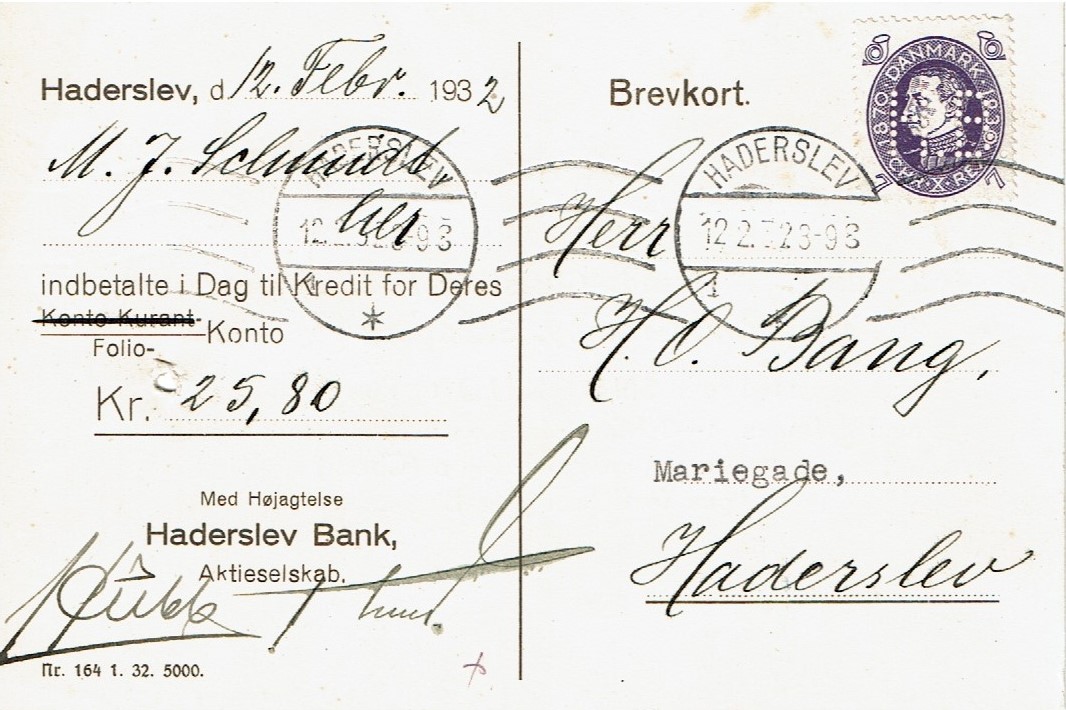 Haderslev, d 12. Febr. 1932
M. J. Schmidt
her
indbetalte i Dag til Kredit for Deres
Konto Kurant-
Folio- Konto
Kr. 25,80
Med Højagtelse
Haderslev Bank,
Aktieselskab.
Nr. 164 1. 32. 5000.
Brevkort.
DANMARK
1870 1930
7 7
HADERSLEV
12 2. 32 8-9 S
1
HADERSLEV
12 2. 32 8-9 S
1
Herr
H. C. Bang,
Mariegade,
Haderslev